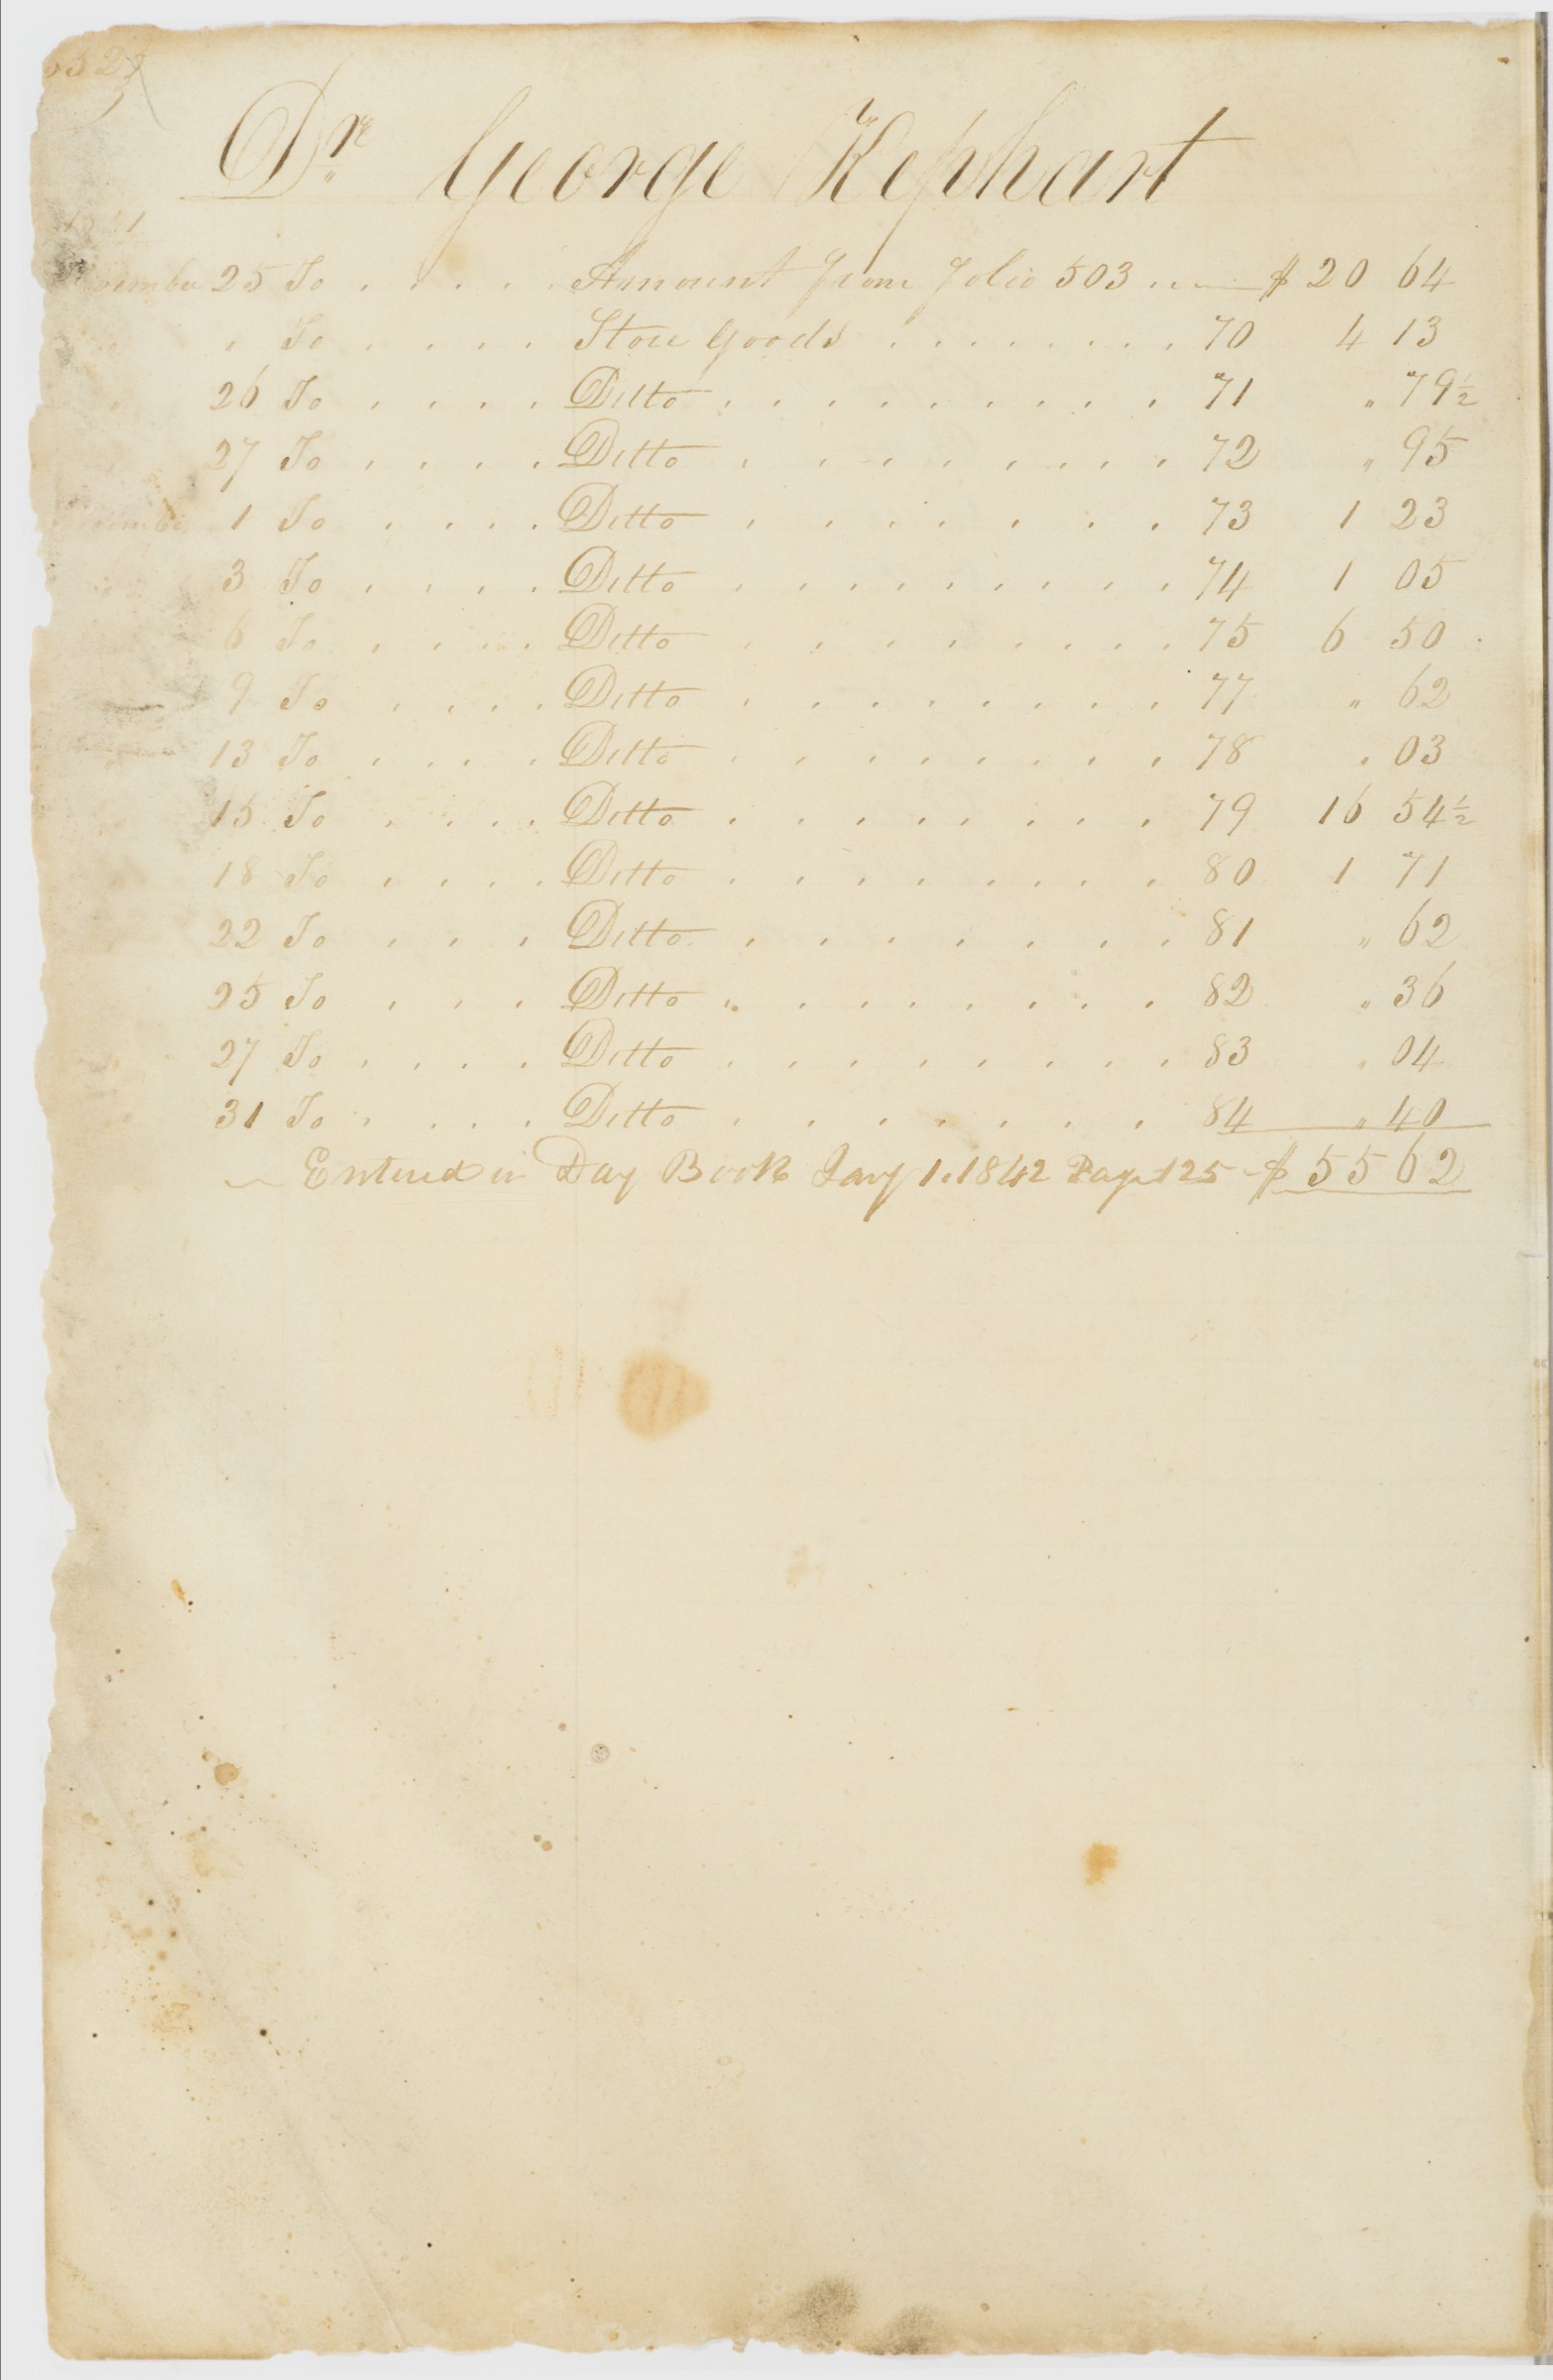 Dr George Kephart
1841
25 To . . . . . Amount from Folio 503 .. — $ 20 64
" To . . . . . Store Goods . . . . . . . . 70 4 13
26 To . . . . Ditto . . . . . . . . . 71 " 79½
27 To . . . . Ditto . . . . . . . . . 72 " 95
1 To . . . . Ditto . . . . . . . . 73 1 23
3 To . . . . Ditto . . . . . . . . . 74 1 05
6 To . . . . Ditto . . . . . . . . . 75 6 50
9 To . . . . Ditto . . . . . . . . 77 " 62
13 To . . . . Ditto . . . . . . . . . 78 " 03
15 To . . . . Ditto . . . . . . . . 79 16 54½
18 To . . . . Ditto . . . . . . . . 80 1 71
22 To . . . Ditto . . . . . . . . 81 " 62
25 To . . . Ditto . . . . . . . . . 82 " 36
27 To . . . . Ditto . . . . . . . . . 83 " 04
31 To . . . . Ditto . . . . . . . . 84 " 40
— Entered in Day Book Jany 1. 1842 Page 125 - $ 55 62